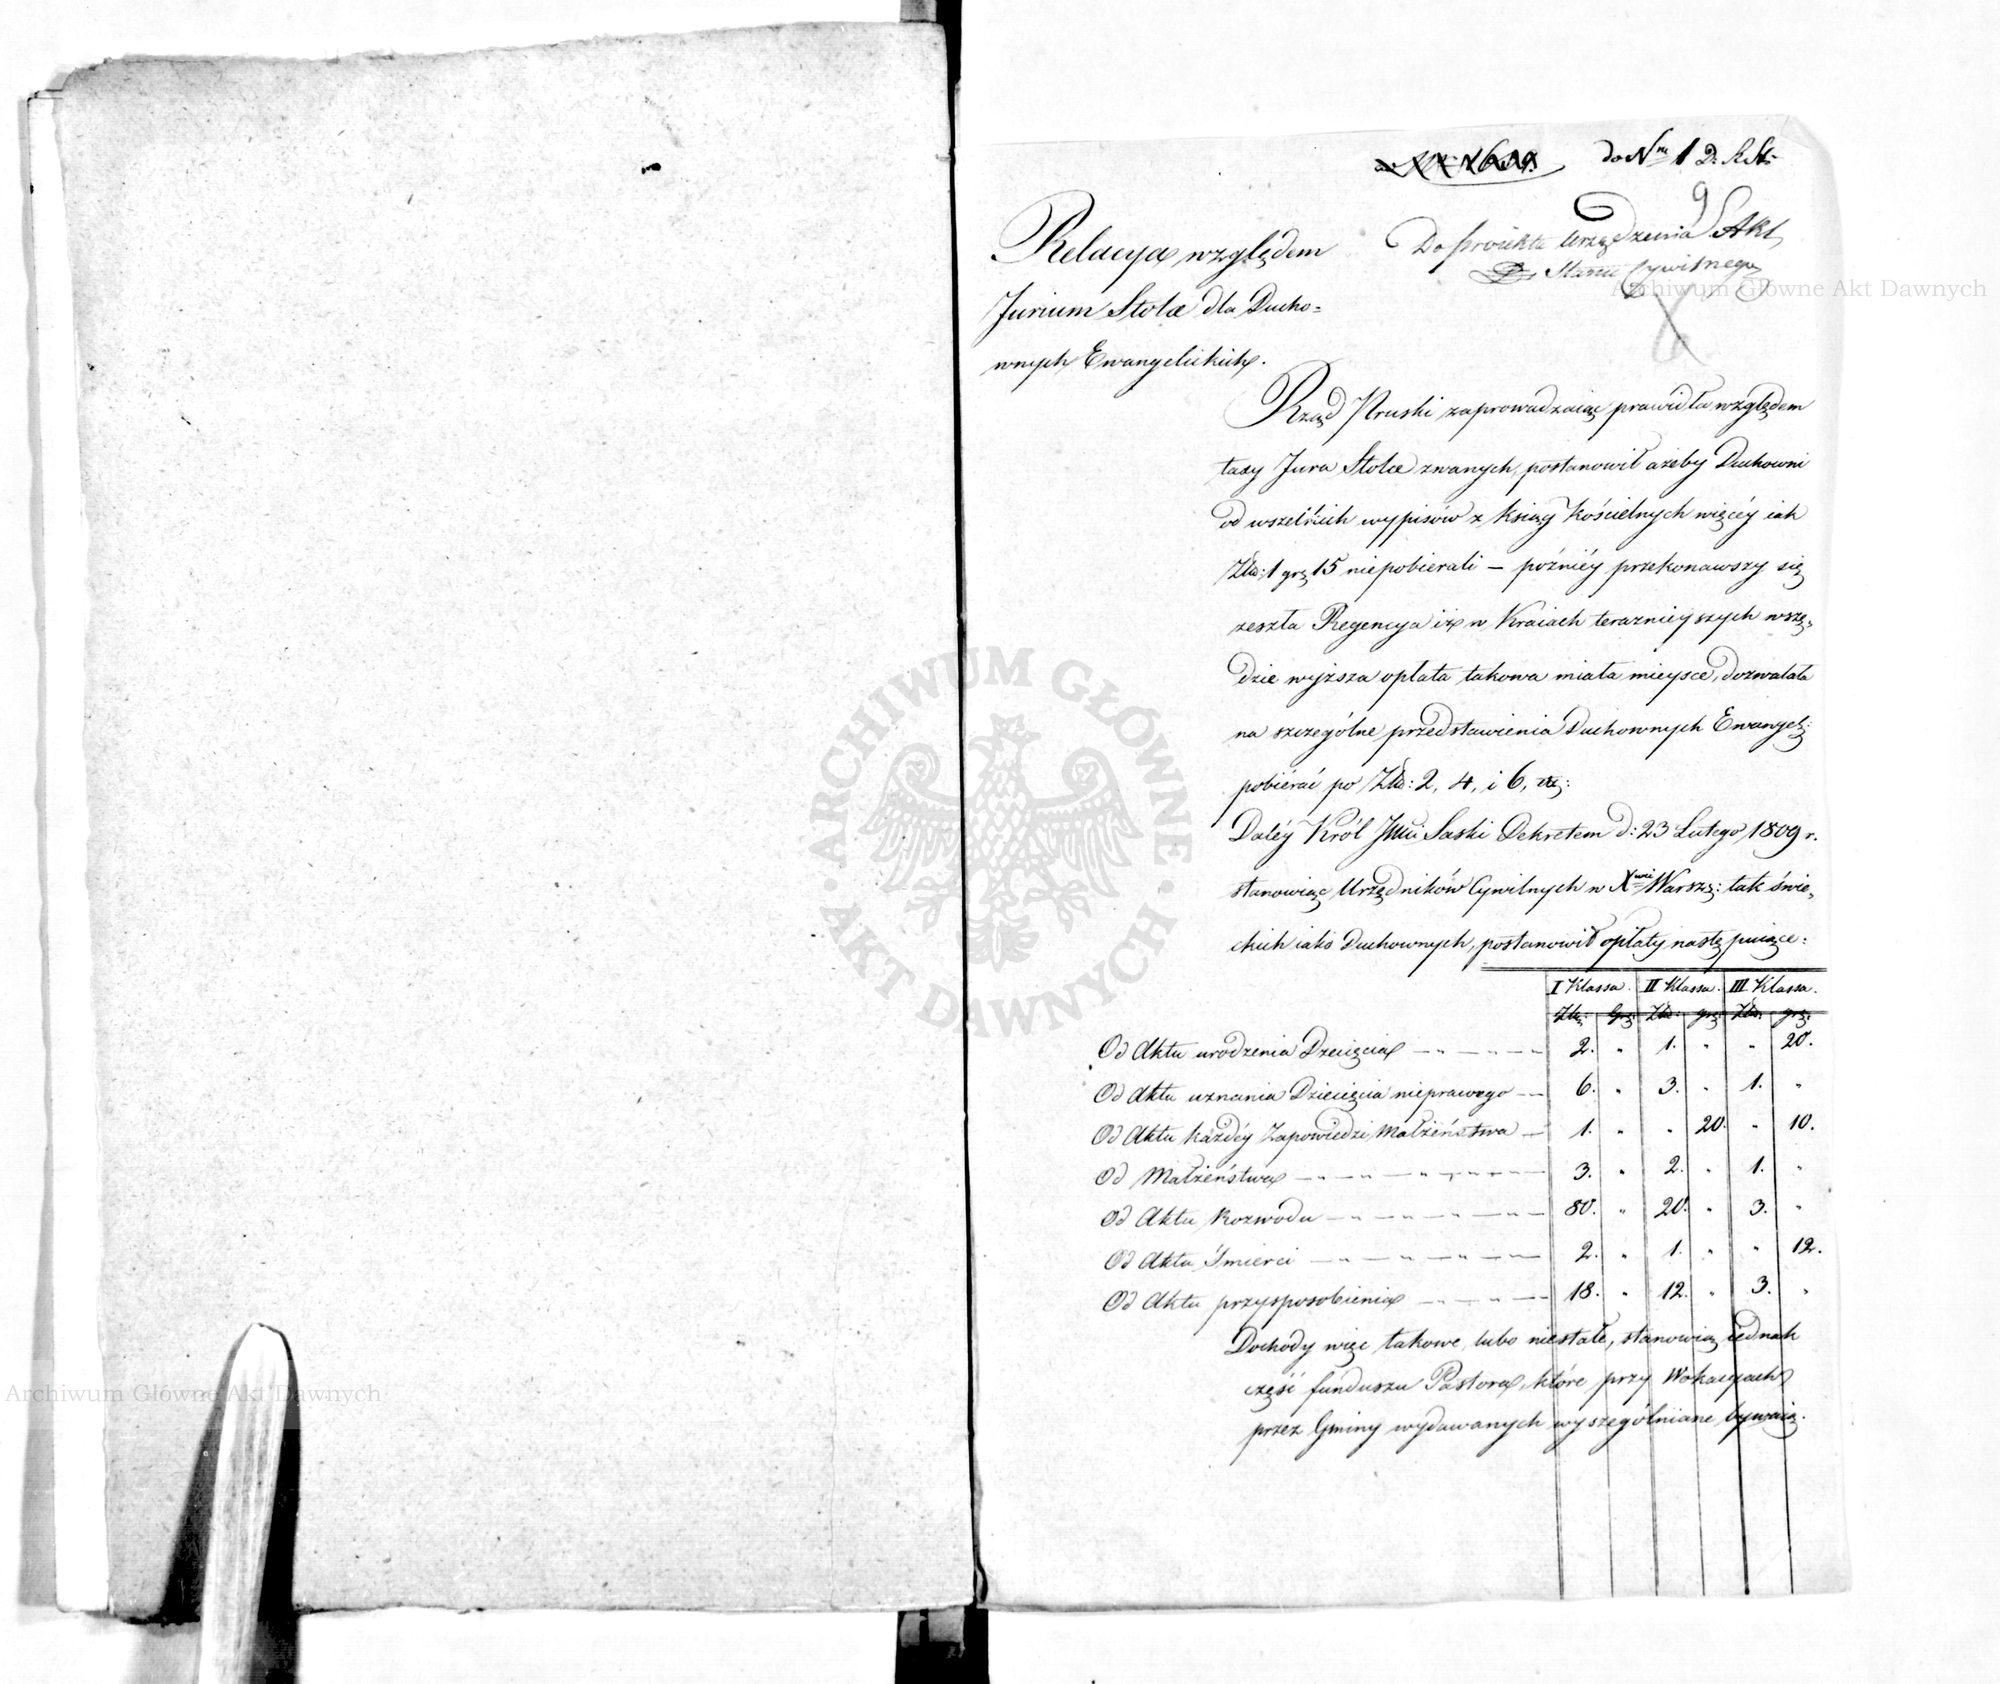 do Nru 1 D. R. St:
9
Do proiektu urządzenia Akt
Stanu Cywilnego
Relacya względem
Jurium Stolæ dla Ducho=
wnych Ewangelickich.
Rząd Pruski zaprowadzaiąc prawidła względem
taxy Jura Stolæ zwanych, postanowił ażeby Duchowni
od wszelkich wypisów z ksiąg kościelnych więcéy iak
Złł: 1 gr: 15 niepobierali – poźniéy przekonawszy się
zeszła Regencya iż w Kraiach teraznieyszych wszę=
dzie wyższa opłata takowa miała mieysce, dozwalała
na szczególne przedstawienia Duchownych Ewangel:
pobiérać po Złł: 2, 4, i 6,
Daléy Król Jmć Saski Dekretem d: 23 Lutego 1809 r.
stanowiąc Urzędników Cywilnych w Xwie Warsz: tak świe=
ckich iako Duchownych, postanowił opłaty następuiące:
I Klassa. II Klassa. III Klassa.
Złł: Gr: Złł: gr: Złł: gr:
Od Aktu urodzenia Dziecięcia 2. " 1. " " 20.
Od Aktu uznania Dziecięcia nieprawego 6. " 3. " 1. "
Od Aktu każdéy Zapowiedzi Małżeństwa 1. " " 20. " 10.
Od Małżeństwa 3. " 2. " 1. "
Od Aktu Rozwodu 80. " 20. " 3. "
Od Aktu Śmierci 2. " 1. " " 12.
Od Aktu przysposobienia 18. " 12. " 3. "
Dochody więc takowe, lubo niestałe, stanowią iednak
część funduszu Pastora, które przy Wokacyach
przez Gminy wydawanych wyszególniane bywaią.
ARCHIWUM GŁÓWNE
AKT DAWNYCH
Archiwum Główne Akt Dawnych
Archiwum Główne Akt Dawnych